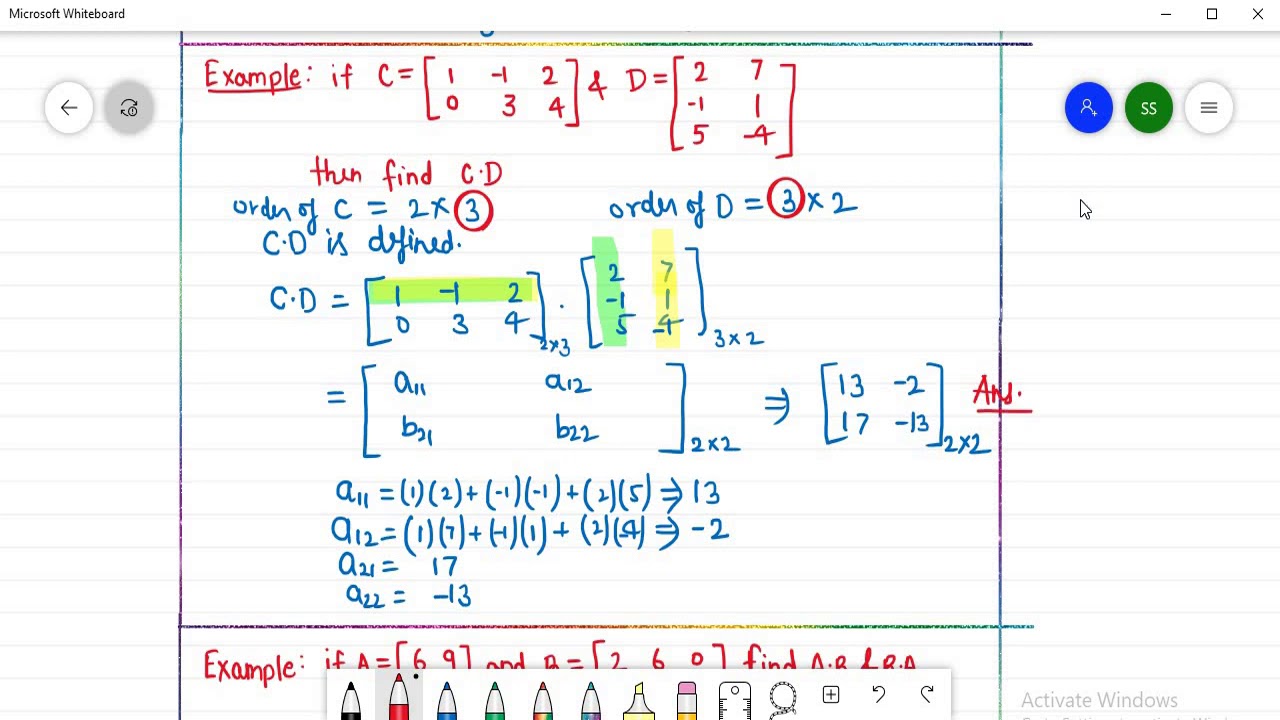 Microsoft Whiteboard
SS
Example: if C = [ 1 -1 2 & D = [ 2 7
0 3 4 ] -1 1
5 -4 ]
then find C·D
order of C = 2 × 3 order of D = 3 × 2
C·D is defined.
C·D = [ 1 -1 2 · [ 2 7
0 3 4 ]2×3 -1 1
5 -4 ]3×2
= [ a11 a12 ⇒ [ 13 -2 Ans.
b21 b22 ]2×2 17 -13 ]2×2
a11 = (1)(2) + (-1)(-1) + (2)(5) ⇒ 13
a12 = (1)(7) + (-1)(1) + (2)(-4) ⇒ -2
a21 = 17
a22 = -13
Example: if A = [ 6 9 ] and B = [ 2 6 0 ] find A·B & B·A
Activate Windows